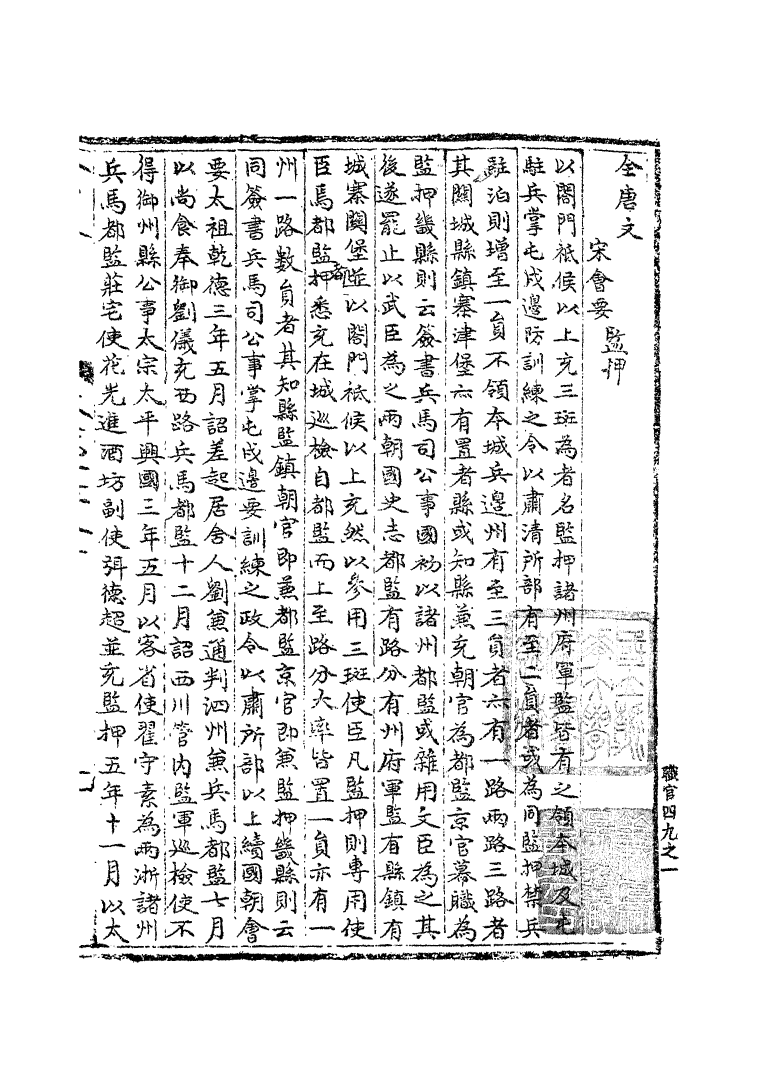 全唐文
宋會要
監押
以閤門祗候以上充三班為者名監押諸州府軍監皆有之領本城及屯
駐兵掌屯戍邊防訓練之令以肅清所部有至二員者或為同監押禁兵
駐泊則增至一員不領本城兵邊州有至三員者亦有一路兩路三路者
其關城縣鎮寨津堡亦有置者縣或知縣兼充朝官為都監京官幕職為
監押畿縣則云簽書兵馬司公事國初以諸州都監或雜用文臣為之其
後遂罷止以武臣為之兩朝國史志都監有路分有州府軍監有縣鎮有
城寨關堡並以閤門祗候以上充然以參用三班使臣凡監押則專用使
臣馬都監押悉充在城巡檢自都監而上至路分大率皆置一員亦有一
州一路數員者其知縣監鎮朝官即兼都監京官即兼監押畿縣則云
同簽書兵馬司公事掌屯戍邊要訓練之政令以肅所部以上續國朝會
要太祖乾德三年五月詔差起居舍人劉兼通判泗州兼兵馬都監七月
以尚食奉御劉儀充西路兵馬都監十二月詔西川管內監軍巡檢使不
得御州縣公事太宗太平興國三年五月以客省使翟守素為兩浙諸州
兵馬都監莊宅使花光進酒坊副使弭德超並充監押五年十一月以太
職官四九之一